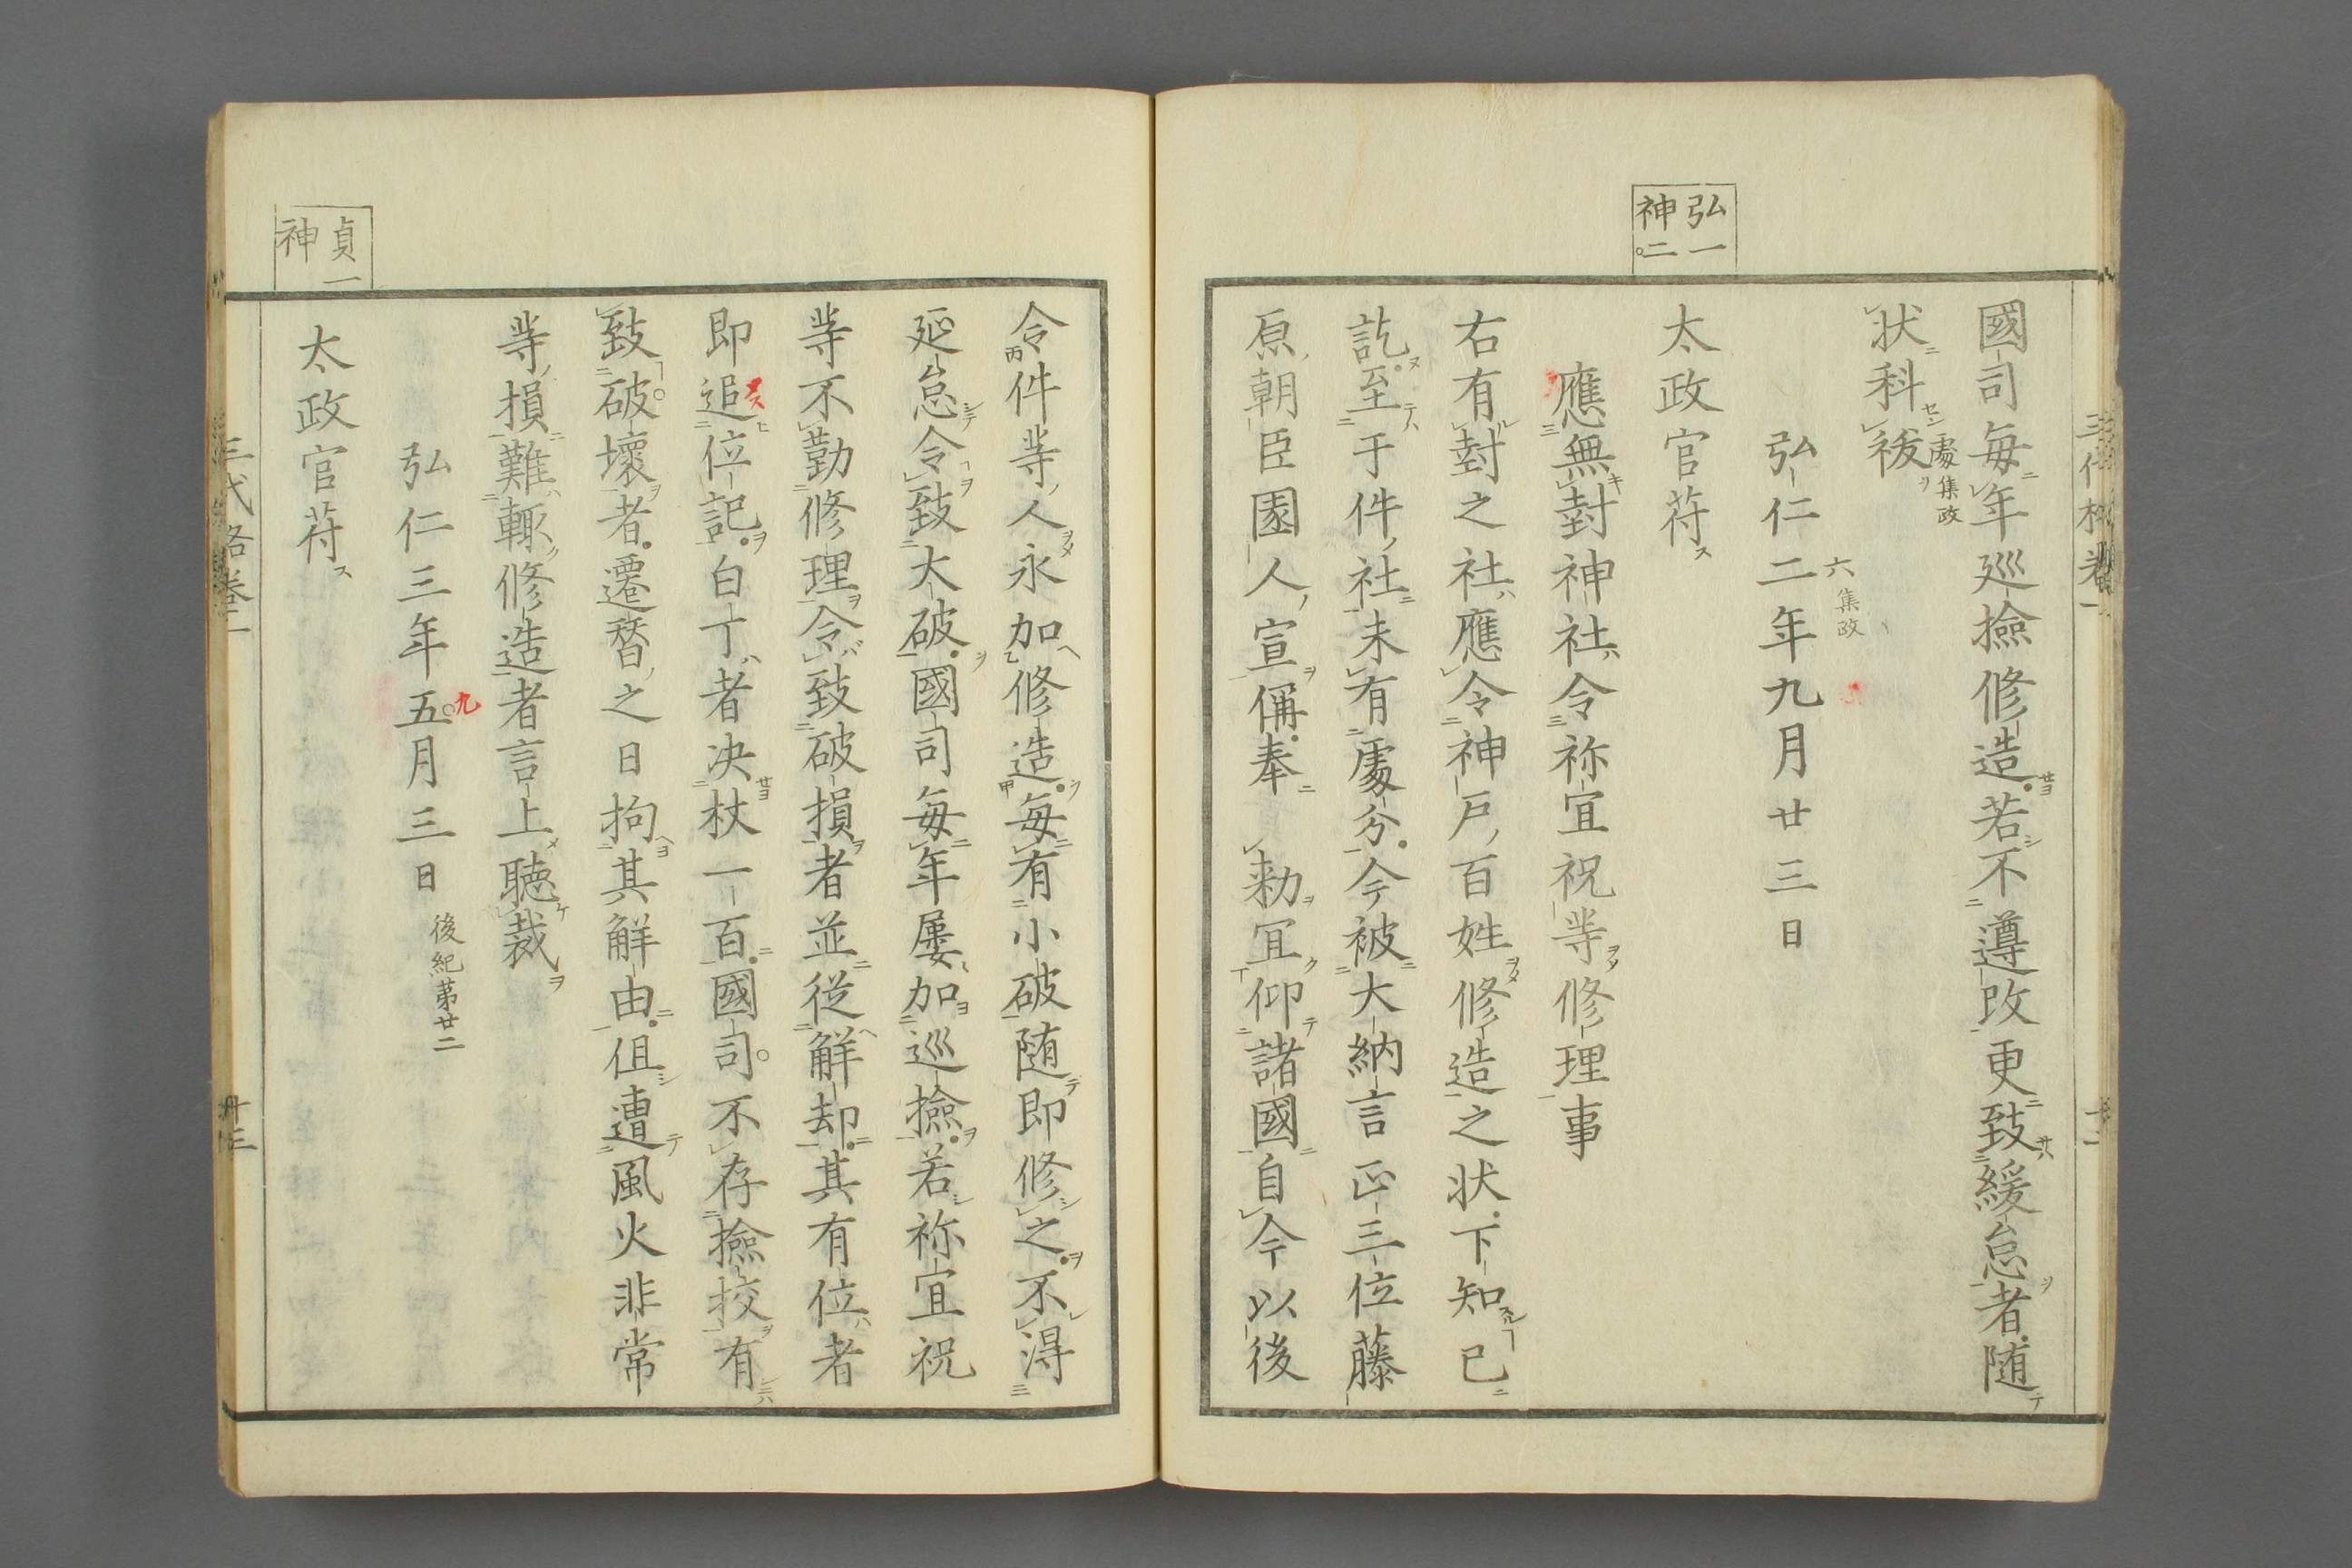 弘一
神二
國司毎年廵撿修造若不遵改更致緩怠者随
状科祓處集政
弘仁二年九月廿三日
六集政
太政官苻
應無封神社令祢宜祝等修理事
右有封之社應令神戸百姓修造之状下知已
訖至于件社未有處分今被大納言正三位藤
原朝臣園人宣偁奉勑冝仰諸國自今以後
令件等人永加修造毎有小破随即修之不得
延怠令致大破國司毎年屢加巡撿若祢宜祝
等不勤修理令致破損者並従解却其有位者
即追位記白丁者决杖一百國司不存撿挍有
致破壞者遷替之日拘其解由但遭風火非常
等損難輙修造者言上聴裁
弘仁三年五月三日後紀第廿二
九
貞一
神
太政官苻
三代格巻一